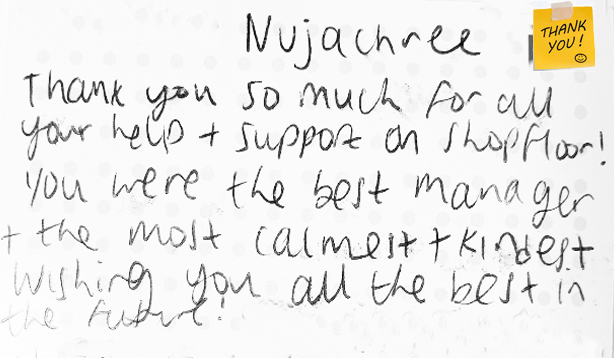 Nujachree
THANK
YOU!
Thank you so much for all
your help + support on shopfloor!
You were the best manager
+ the most calmest + kindest
Wishing you all the best in
the future!